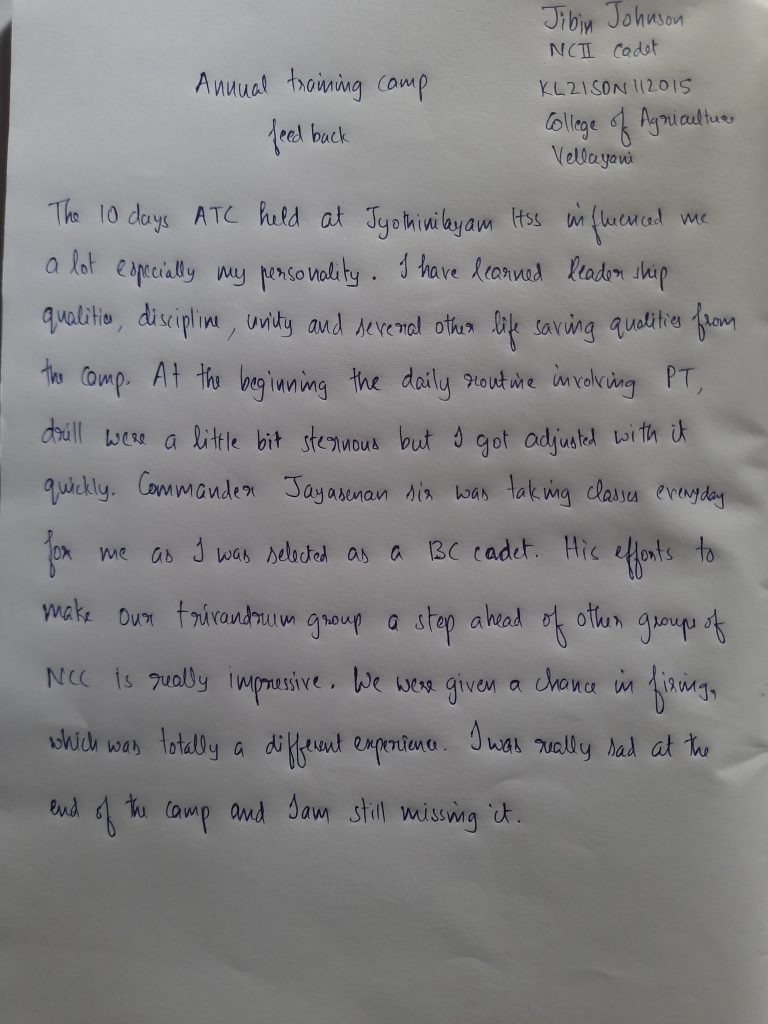 Jibin Johnson
NCII Cadet
KL21SDN112015
College of Agriculture
Vellayani
Annual training camp
feed back
The 10 days ATC held at Jyothinilayam Hss influenced me
a lot especially my personality. I have learned leader ship
qualities, discipline, unity and several other life saving qualities from
the camp. At the beginning the daily routine involving PT,
drill were a little bit sternous but I got adjusted with it
quickly. Commander Jayasenan sir was taking classes everyday
for me as I was selected as a BC cadet. His efforts to
make our trivandrum group a step ahead of other groups of
NCC is really impressive. We were given a chance in firing,
which was totally a different experience. I was really sad at the
end of the camp and I am still missing it.